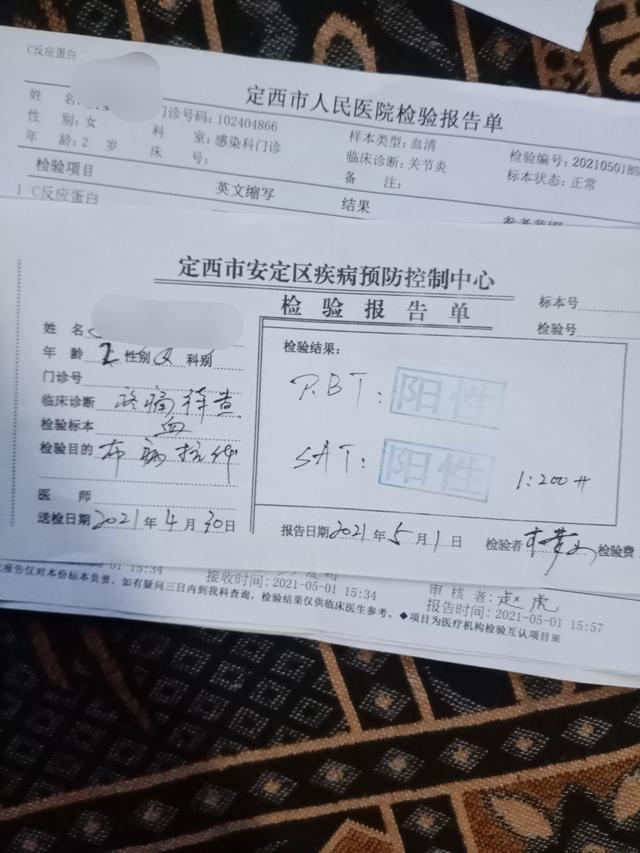 C反应蛋白
定西市人民医院检验报告单
姓 名: 门诊号码: 102404866 样本类型: 血清 检验编号: 2021050185
性 别: 女 科 室: 感染科门诊 临床诊断: 关节炎 标本状态: 正常
年 龄: 2 岁 床 号: 备 注:
检验项目 英文缩写 结果
1 C反应蛋白
定西市安定区疾病预防控制中心
检验报告单
标本号
检验号
姓 名
年 龄 2 性别 女 科别
门诊号
临床诊断 疼痛待查
检验标本 血
检验目的 布病抗体
医 师
送检日期 2021年4月30日
检验结果:
RBT: 阳性
SAT: 阳性 1:200 ++
报告日期 2021年5月1日 检验者 检验费
-05-01 15:34 接收时间: 2021-05-01 15:34 审 核 者: 赵虎
报告仅对本份标本负责, 如有疑问三日内到我科查询, 检验结果仅供临床医生参考。◆项目为医疗机构检验互认项目※ 报告时间: 2021-05-01 15:57